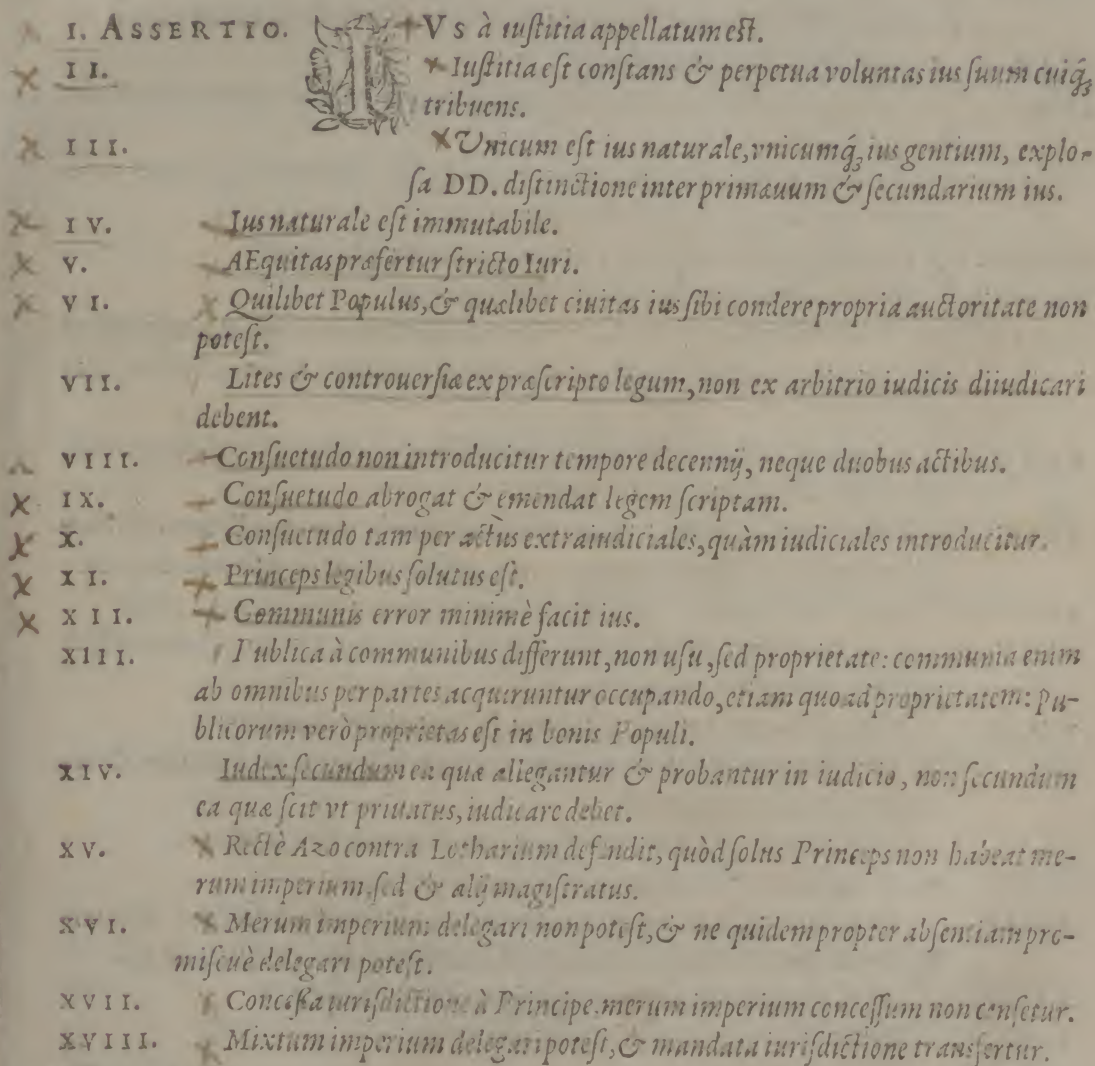 I. ASSERTIO. IVs à iuſtitia appellatum eſt.
II. Iuſtitia eſt conſtans & perpetua voluntas ius ſuum cuiq́;
tribuens.
III. Unicum eſt ius naturale, vnicumq́; ius gentium, explo-
ſa DD. diſtinctione inter primæuum & ſecundarium ius.
IV. Ius naturale eſt immutabile.
V. AEquitas præfertur ſtricto Iuri.
VI. Quilibet Populus, & quælibet ciuitas ius ſibi condere propria auctoritate non
poteſt.
VII. Lites & controuerſiæ ex præſcripto legum, non ex arbitrio iudicis diiudicari
debent.
VIII. Conſuetudo non introducitur tempore decennij, neque duobus actibus.
IX. Conſuetudo abrogat & emendat legem ſcriptam.
X. Conſuetudo tam per actus extraiudiciales, quàm iudiciales introducitur.
XI. Princeps legibus ſolutus eſt.
XII. Communis error minimè facit ius.
XIII. Publica à communibus differunt, non uſu, ſed proprietate: communia enim
ab omnibus per partes acquiruntur occupando, etiam quoad proprietatem: pu-
blicorum verò proprietas eſt in bonis Populi.
XIV. Iudex ſecundum ea quæ allegantur & probantur in iudicio, non ſecundum
ea quæ ſcit vt priuatus, iudicare debet.
XV. Rectè Azo contra Lotharium defendit, quòd ſolus Princeps non habeat me-
rum imperium, ſed & alij magiſtratus.
XVI. Merum imperium delegari non poteſt, & ne quidem propter abſentiam pro-
miſcuè delegari poteſt.
XVII. Conceſſa iuriſdictione à Principe, merum imperium conceſſum non cenſetur.
XVIII. Mixtum imperium delegari poteſt, & mandata iuriſdictione transfertur.